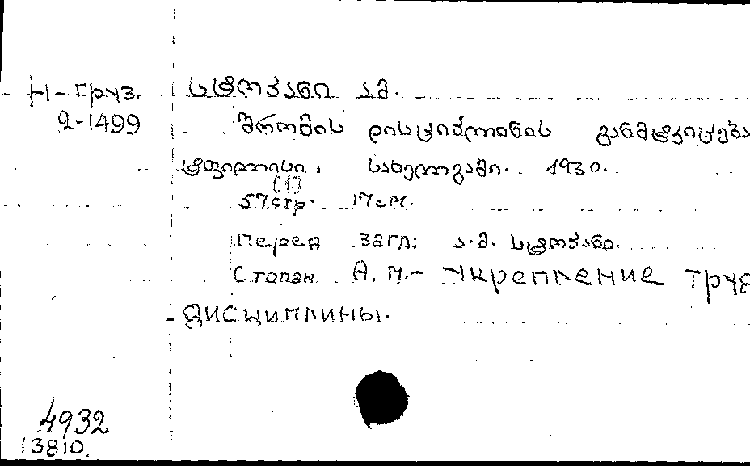 Н-Груз. სტოპანი ა.მ.
2-1499 შრომის დისციპლინის განმტკიცება
ტფილისი, სახელგამი. 1930.
57стр. (1) 17см.
Перед загл: ა.მ. სტოპანი.
Стопани А.М.- Укрепление труд
дисциплины.
4932
13810.